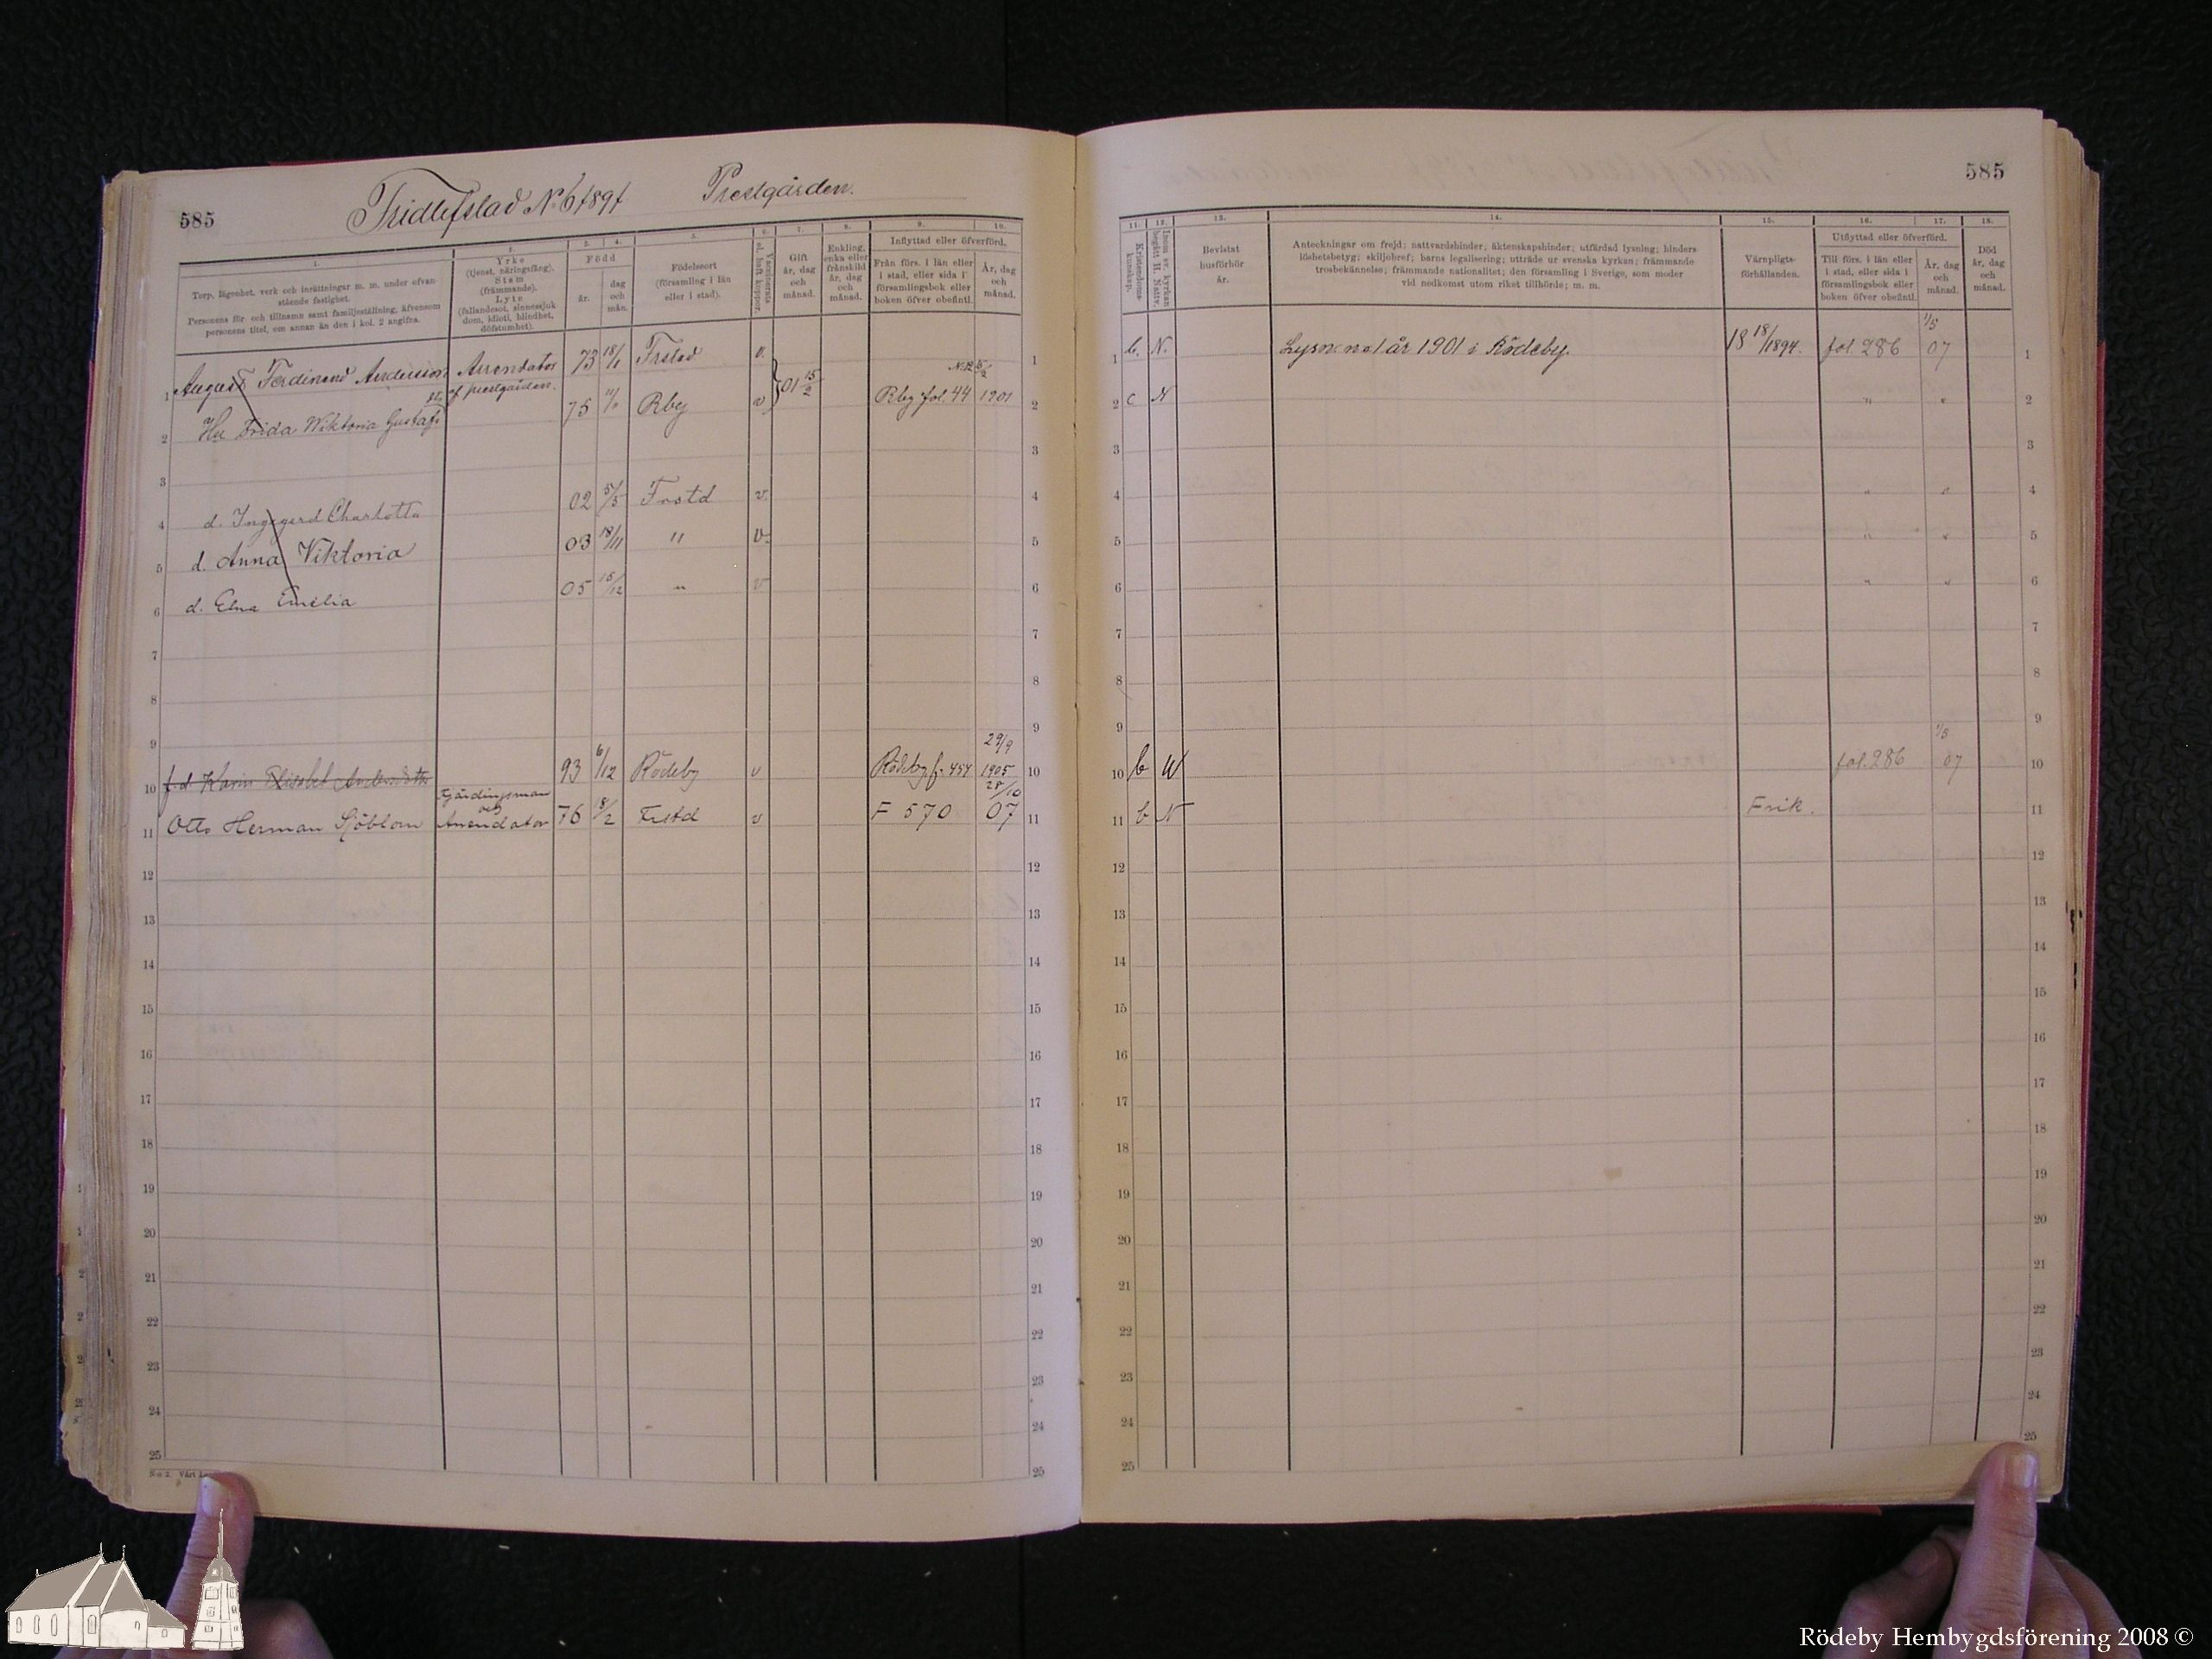 585
Fridlefstad No 6 1891 Prestgården.
1. 2. 3. 4. 5. 6. 7. 8. 9. 10.
Torp, lägenhet, verk och inrättningar m. m. under ofvanstående fastighet.
Personens för- och tillnamn samt familjeställning, äfvensom personens titel, om annan än den i kol. 2 angifna.
Yrke
(tjenst, näringsfång).
Stam
(främmande).
Lyte
(fallandesot, sinnessjukdom, idioti, blindhet, döfstumhet).
Född
år.
dag och mån.
Födelseort
(församling i län eller i stad).
Gift
år, dag och månad.
Enkling, enka eller frånskild år, dag och månad.
Inflyttad eller öfverförd.
Från förs. i län eller i stad, eller sida i församlingsbok eller boken öfver obefintl.
År, dag och månad.
1 August Ferdinand Andersson Arrendator af prestgården. 73 18/1 Frstad v. 1
2 Hu Frida Wiktoria Gustafs 75 Rby v 01 15/2 Rby fol. 44 1901 2
3 3
4 d. Ingegerd Charlotta 02 5/5 Frstd v. 4
5 d. Anna Viktoria 03 18/11 " v. 5
6 d. Elna Emelia 05 15/12 " v 6
7 7
8 8
9 9
10 f. d. Karin Elisabet Andersdtter 93 6/12 Rödeby v Rödeby f. 454 29/9 1905 10
11 Otto Herman Sjöblom Fjärdingsman och Arrendator 76 18/2 Frstd v F 570 28/10 07 11
12 12
13 13
14 14
15 15
16 16
17 17
18 18
19 19
20 20
21 21
22 22
23 23
24 24
25 25
585
11. 12. 13. 14. 15. 16. 17. 18.
Kristendomskunskap.
Inom sv. kyrkan begått H. Nattv.
Bevistat husförhör år.
Anteckningar om frejd; nattvardshinder; äktenskapshinder; utfärdad lysning; hinders
löshetsbetyg; skiljobref; barns legalisering; utträde ur svenska kyrkan; främmande
trosbekännelse; främmande nationalitet; den församling i Sverige, som moder
vid nedkomst utom riket tillhörde; m. m.
Värnpligtsförhållanden.
Utflyttad eller öfverförd.
Till förs. i län eller i stad, eller sida i församlingsbok eller boken öfver obefintl.
År, dag och månad.
Död år, dag och månad.
1 b. N. Lysn. no 1 år 1901 i Rödeby. 18 18/1894. fol. 286 1/5 07 1
2 c N " " 2
3 3
4 " " 4
5 " " 5
6 " " 6
7 7
8 8
9 9
10 b N fol. 286 1/5 07 10
11 b N Frik. 11
12 12
13 13
14 14
15 15
16 16
17 17
18 18
19 19
20 20
21 21
22 22
23 23
24 24
25 25
Rödeby Hembygdsförening 2008 ©